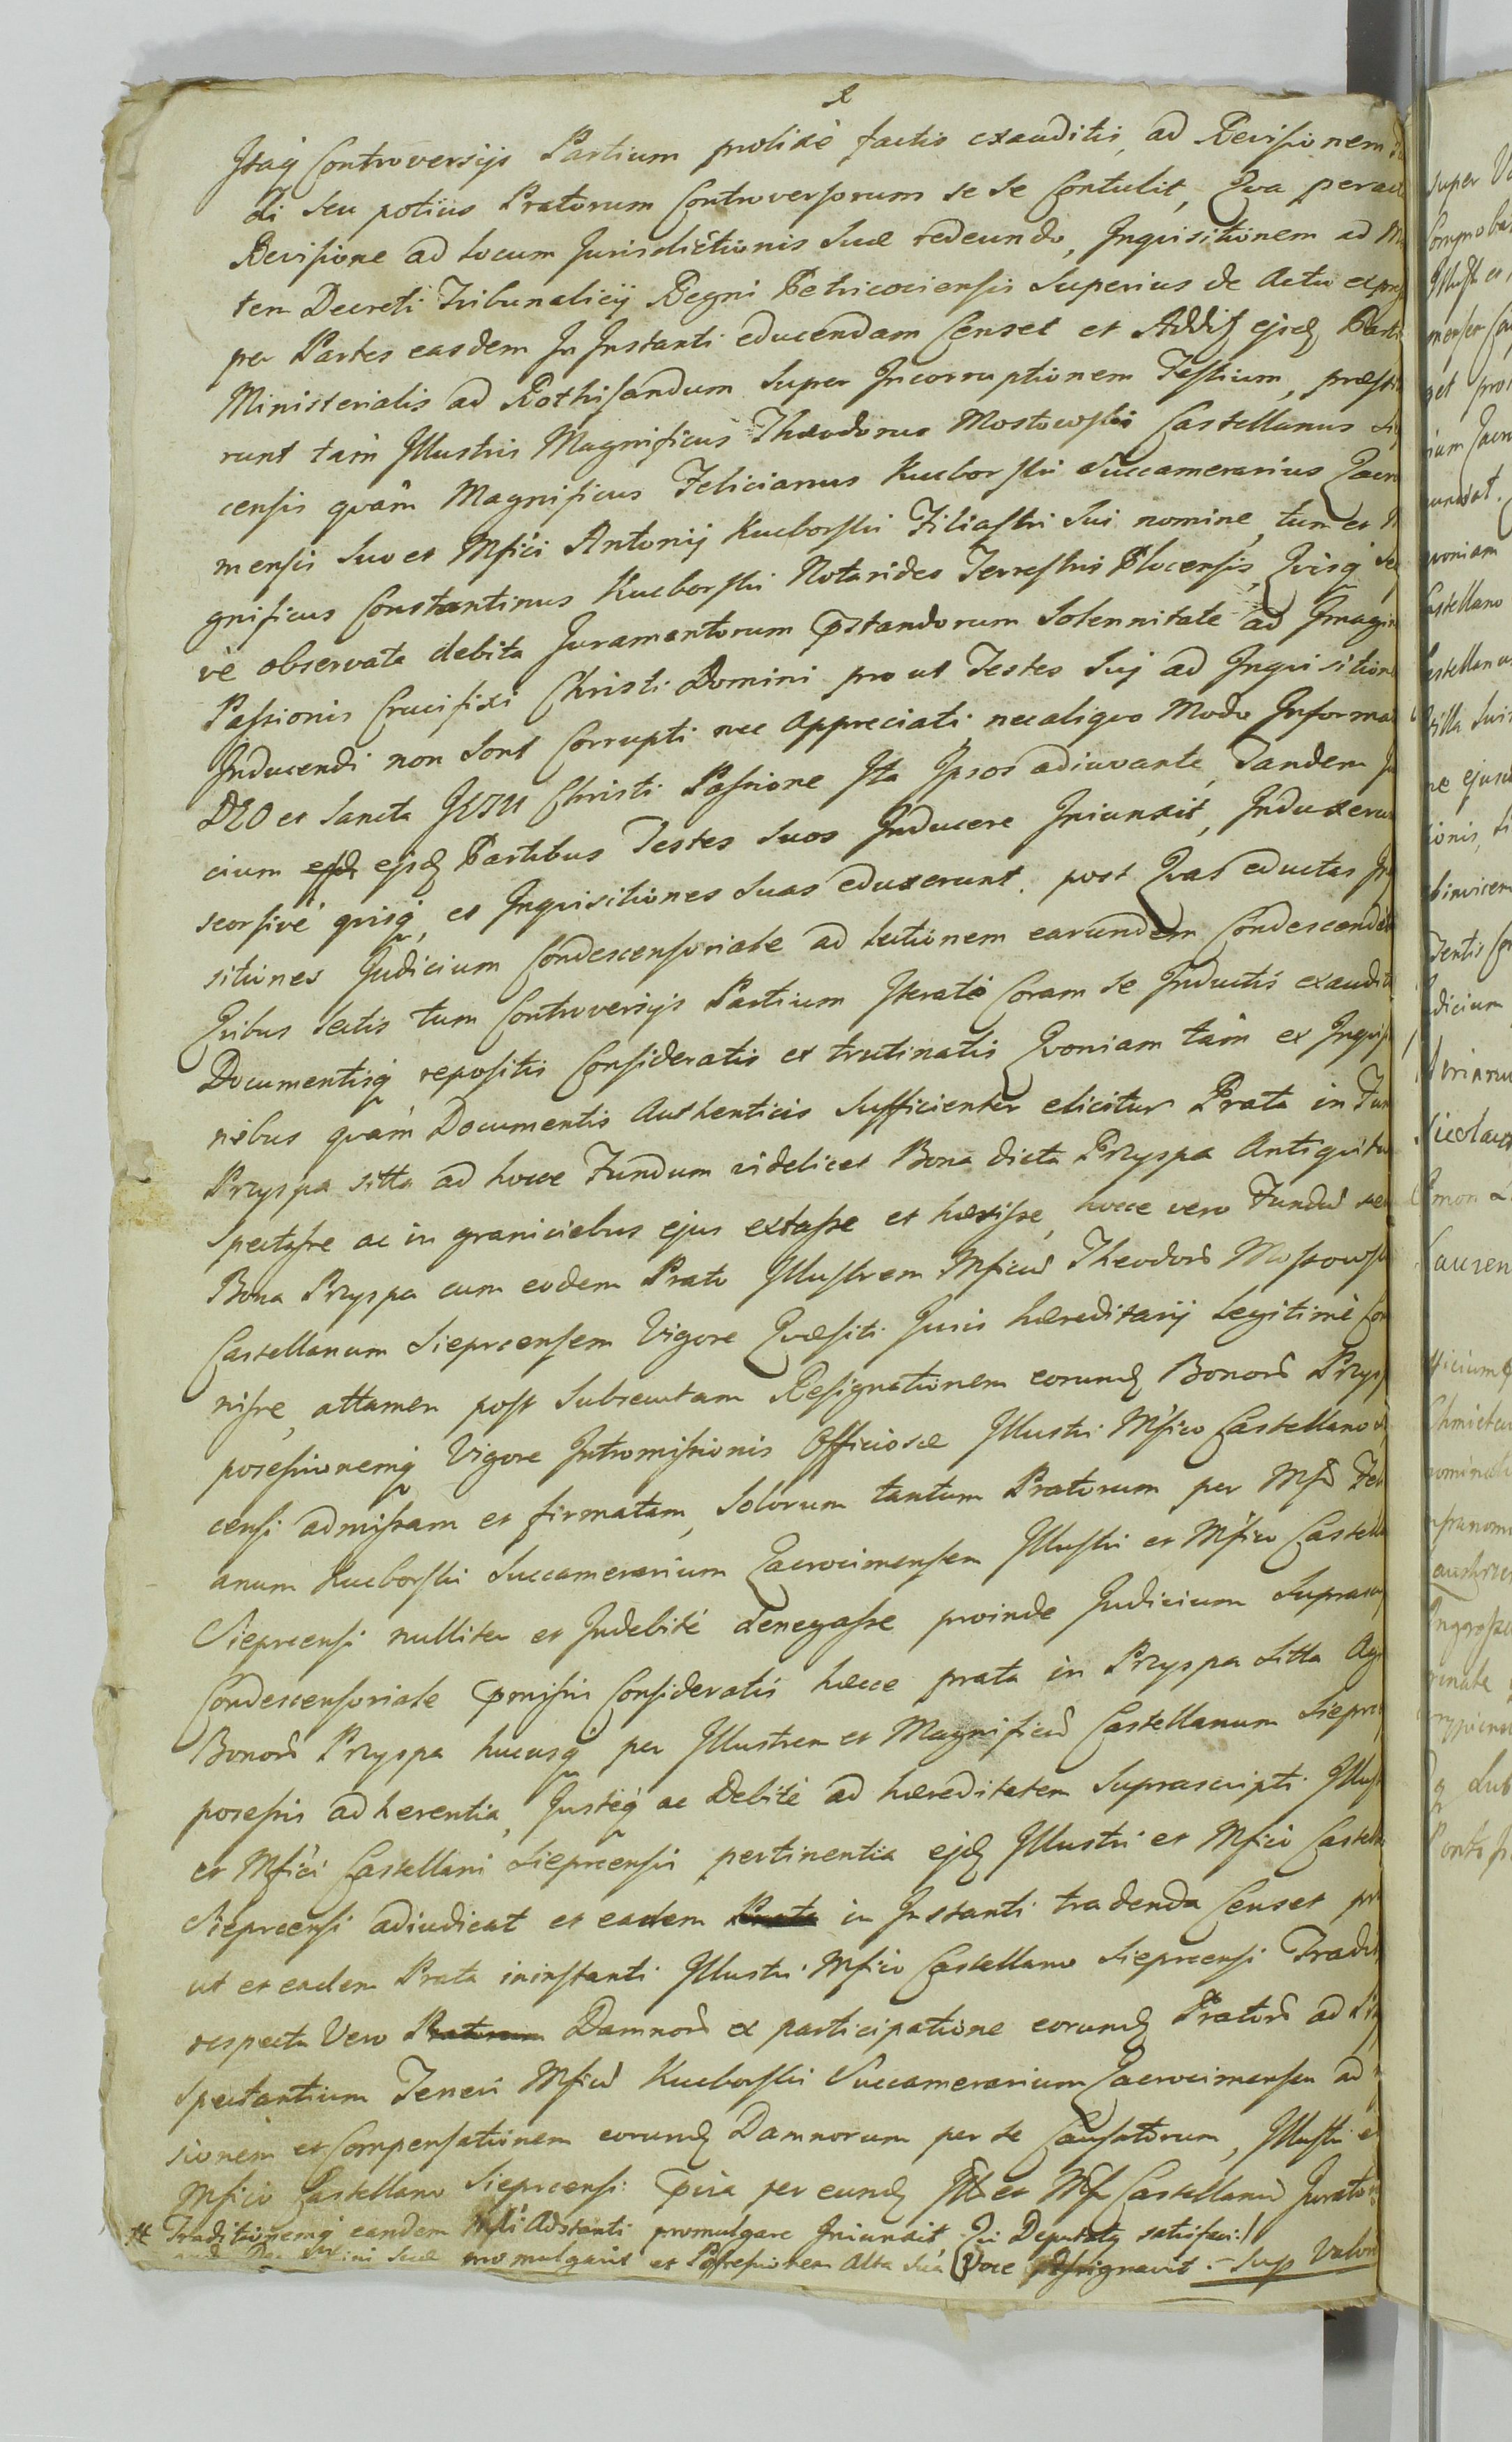 Itaq Controversijs Partium prolixè factis exauditis, ad Revisionem
di seu potius Pratorum Controversorum se se Contulit, Qva perac
Revisione ad locum Jurisdictionis Suæ redeundo, Inqvisitionem ad
tem Decreti Tribunalicij Regni Petricoviensis Superius de Actu expres
per Partes easdem In Instanti educendam Censet et Addit ejsd Parti
Ministerialis ad Rothisandum Super Incorruptionem Testium, præsti
runt tàm Illustris Magnificus Theodorus Mostowski Castellanus Si
censis qvàm Magnificus Felicianus Kuczborski Succamerarius Zacro
mensis Suo et Mfici Antonij Kuczborski Filiastri Sui nomine, tum et M
gnificus Constantinus Kuczborski Notarides Terrestris Plocensis, Qvisq Se
vè observata debita Juramentorum pstandorum Solennitate ad Imagin
Passionis Crucifixi Christi Domini pro ut Testes Suj ad Inqvisition
Inducendi non Sont Corrupti nec Appreciati, nec aliqvo Modo Informa
DEO et Sancta JESU Christi Passione Ita Ipsos adiuvante, Tandem Ju
cium ejsd Partibus Testes Suos Inducere Iniunxit, Induxeru
seorsivè qvisq, et Inqvisitiones Suas eduxerunt. post Qvas eductas In
sitiones Judicium Condescensoriale ad Lectionem earundem Condescendit
Qvibus Lectis tum Controversijs Partium Iteratò Coram Se Inductis exaudit
Documentisq repositis Consideratis et trutinatis Qvoniam tàm ex Inqvis
nibus qvàm Documentis Authenticis Sufficienter elicitur Prata in Fun
Przyspa sitta ad hocce Fundum videlicet Bona dicta Przyspa Antiqvitu
Spectasse ac in graniciebus ejus extasse et hæsisse, hocce vero Fundũ seu
Bona Przyspa cum eodem Prato Illustrem Mficũ Theodorũ Mostowsk
Castellanum Sieprcensem Vigore Qvæsiti Juris hæreditarij Legitimè Con
nisse, attamen post Subsecutam Resignationem eorumd Bonorũ Przysp
posessionemq Vigore Intromissionis Officiosæ Illustri Mfico Castellano Si
censi admissam et firmatam, Solorum tantum Pratorum per Mfũ Feli
anum Kuczborski Succamerarium Zacrocimensem Illustri et Mfico Castella
Sieprcensi nulliter et Indebitè denegasse proinde Judicium Suprascr
Condescensoriale pmissis Consideratis hæcce prata in Przyspa Sitta Ag
Bonorũ Przyspa hucusq per Illustrem et Magnificũ Castellanum Sieprc
posessis adherentia, Justeq ac Debitè ad hæreditatem Suprascripti Illust
et Mfici Castellani Sieprcensis pertinentia ejd Illustri et Mfico Castella
Sieprcensi adiudicat et eadem Prata in Instanti tradenda Censet pr
ut et eadem Prata in instanti Illustri Mfico Castellano Sieprcensi Tradit
respectu Vero Pratorum Damnorũ ex participatione eorumd Pratorũ ad Si
Spectantium Teneri Mficũ Kuczborski Succamerarium Zacrocimensem ad
sionem et Compensationem eorumd Damnorum per se Causatorum, Illustri et
Mfico Castellano Sieprcensi pvia per eund Ill et Mf Castellanũ Jurator
# Traditionemq eandem Adstanti promulgare Iniunxit Qvi Deputatq satisfaci:/
Suæ promulgavit et Possessionem Alta Sua Voce Assignavit. – Sup Valor